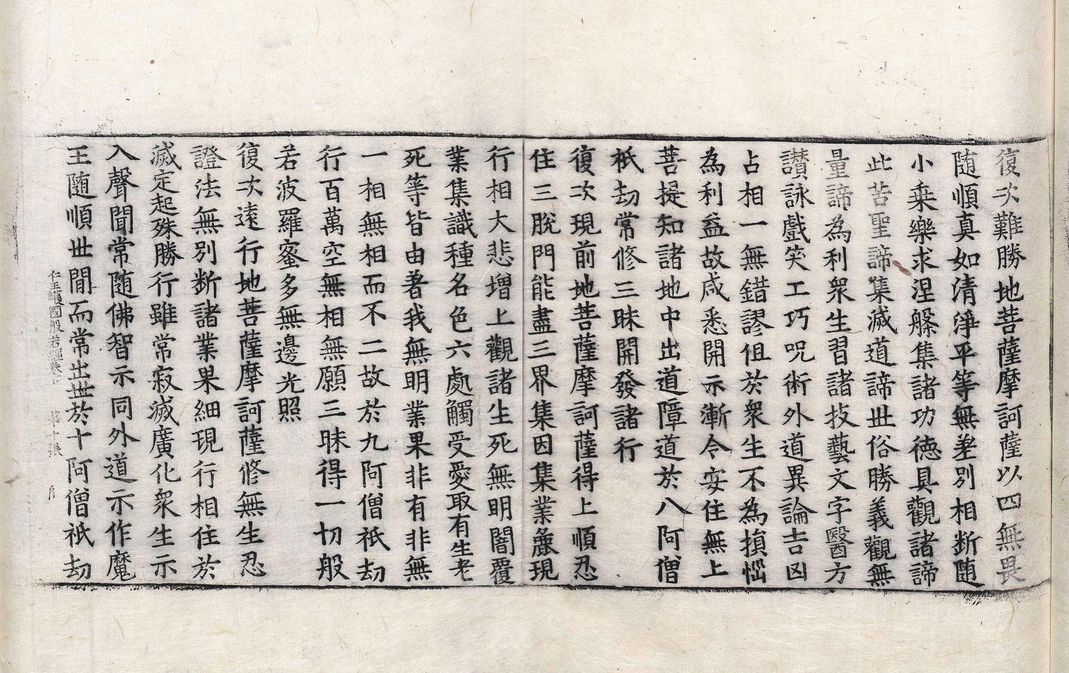 復次難勝地菩薩摩訶薩以四無畏
随順真如清淨平等無差別相断随
小乗樂求涅槃集諸功徳具觀諸諦
此苦聖諦集滅道諦世俗勝義觀無
量諦為利衆生習諸技藝文字醫方
讃詠戲笑工巧呪術外道異論吉凶
占相一無錯謬但於衆生不為損惱
為利益故咸悉開示漸令安住無上
菩提知諸地中出道障道於八阿僧
祇劫常修三昧開發諸行
復次現前地菩薩摩訶薩得上順忍
住三脫門能盡三界集因集業麁現
行相大悲增上觀諸生死無明闇覆
業集識種名色六處觸受愛取有生老
死等皆由著我無明業果非有非無
一相無相而不二故於九阿僧祇劫
行百萬空無相無願三昧得一切般
若波羅蜜多無邊光照
復次遠行地菩薩摩訶薩修無生忍
證法無別断諸業果細現行相住於
滅定起殊勝行雖常寂滅廣化衆生示
入聲聞常随佛智示同外道示作魔
王随順世間而常出世於十阿僧祇劫
仁王護國般若經 第十張